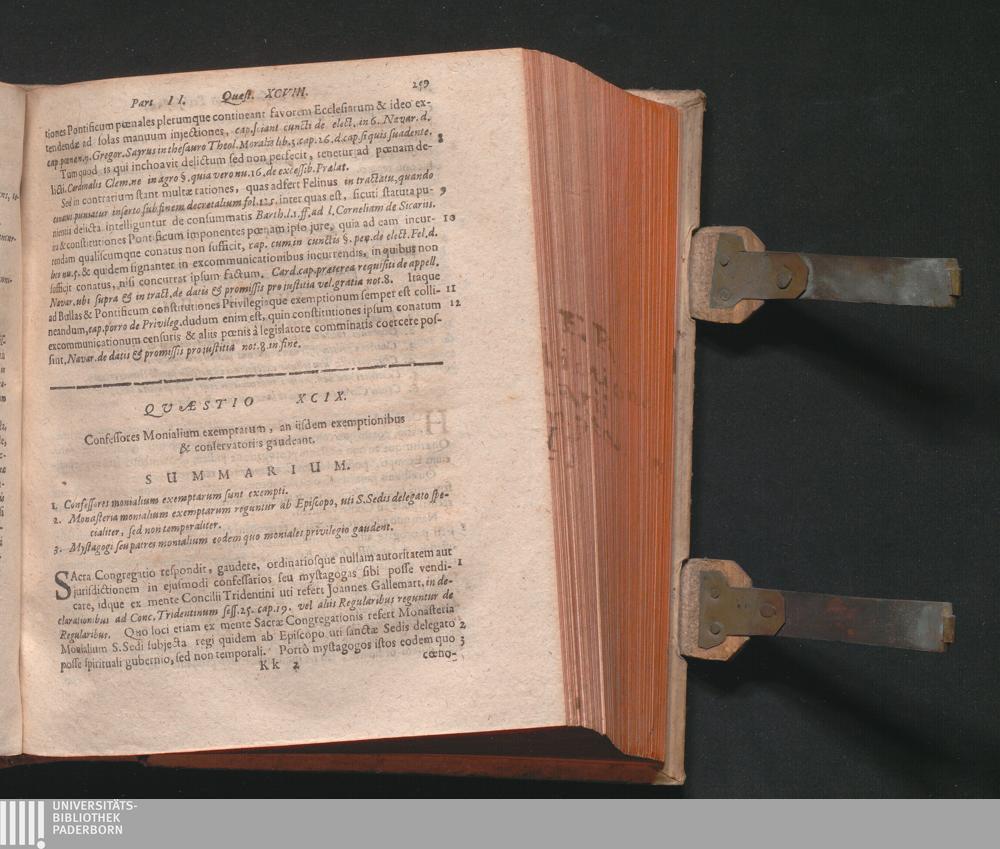 Part II. Quæst. XCVIII. 259
tiones Pontificum pœnales plerumque contineant favorem Ecclesiarum & ideo ex-
tendendæ ad solas manuum injectiones, cap. sciant cuncti de elect. in 6. Navar. d.
Gregor. Sayrus in thesauro Theol. Moralis lib. 3. cap. 26. d. cap. si quis suadente.
Tum quod is qui inchoavit delictum sed non perfecit, tenetur ad pœnam de- 8
licti. Cardinalis Clem. ne in agro §. quia vero nu. 16. de excessib. Prælat.
Sed in contrarium stant multæ rationes, quas adfert Felinus in tractatu, quando
conatus puniatur inserto sub finem decretalium fol. 125. inter quas est, sicuti statuta pu- 9
nientia delicta intelliguntur de consummatis Barth. l. 1. ff. ad l. Corneliam de Sicarus.
ita & constitutiones Pontificum imponentes pœnam ipso jure, quia ad eam incur- 10
rendam qualiscumque conatus non sufficit, cap. cum in cunctis §. pen. de elect. Fel. d.
loco nu. 5. & quidem signanter in excommunicationibus incurrendis, in quibus non
sufficit conatus, nisi concurrat ipsum factum. Card. cap. præterea requisisti de appell.
Navar. ubi supra & in tract. de datis & promissis pro justitia vel gratia not. 8. Itaque
ad Bullas & Pontificum constitutiones Privilegiaque exemptionum semper est colli- 11
neandum, cap. porro de Privileg. dudum enim est, quin constitutiones ipsum conatum 12
excommunicationum censuris & aliis pœnis à legislatore comminatis coercere pos-
sint, Navar. de datis & promissis pro justitia not. 8. in fine.
QUÆSTIO XCIX.
Confessores Monialium exemptarum, an iisdem exemptionibus
& conservatoriis gaudeant.
SUMMARIUM.
1. Confessores monialium exemptarum sunt exempti.
2. Monasteria monialium exemptarum reguntur ab Episcopo, uti S. Sedis delegato spe-
cialiter, sed non temporaliter.
3. Mystagogi seu patres monialium eodem quo moniales privilegio gaudent.
SActa Congregatio respondit, gaudere, ordinariosque nullam autoritatem aut 1
jurisdictionem in ejusmodi confessarios seu mystagogas sibi posse vendi-
care, idque ex mente Concilii Tridentini uti refert Joannes Gallemart, in de-
clarationibus ad Conc. Tridentinum sess. 25. cap. 19. vel aliis Regularibus reguntur de
Regularibus. Quo loci etiam ex mente Sacræ Congregationis refert Monasteria
Monialium S. Sedi subjecta regi quidem ab Episcopo uti sanctæ Sedis delegato 2
posse spirituali gubernio, sed non temporali. Porrò mystagogos istos eodem quo 3
Kk 2 cœno-
UNIVERSITÄTS-
BIBLIOTHEK
PADERBORN